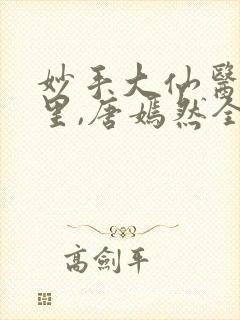 妙手大仙醫
里,唐嫣然全
高劍平